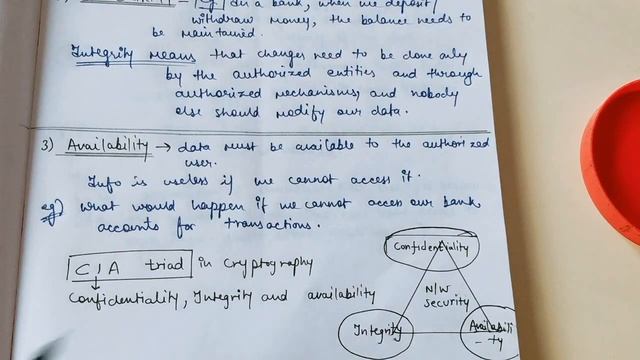 – (eg) In a bank, when we deposit/
withdraw money, the balance needs to
be maintained.
Integrity means that changes need to be done only
by the authorized entities and through
authorized mechanisms, and nobody
else should modify our data.
3) Availability → data must be available to the authorized
user.
Info is useless if we cannot access it.
eg) What would happen if we cannot access our bank
accounts for transactions.
CIA triad in cryptography
Confidentiality, Integrity and availability
Confidentiality
N/W
security
Integrity
Availabili
- ty